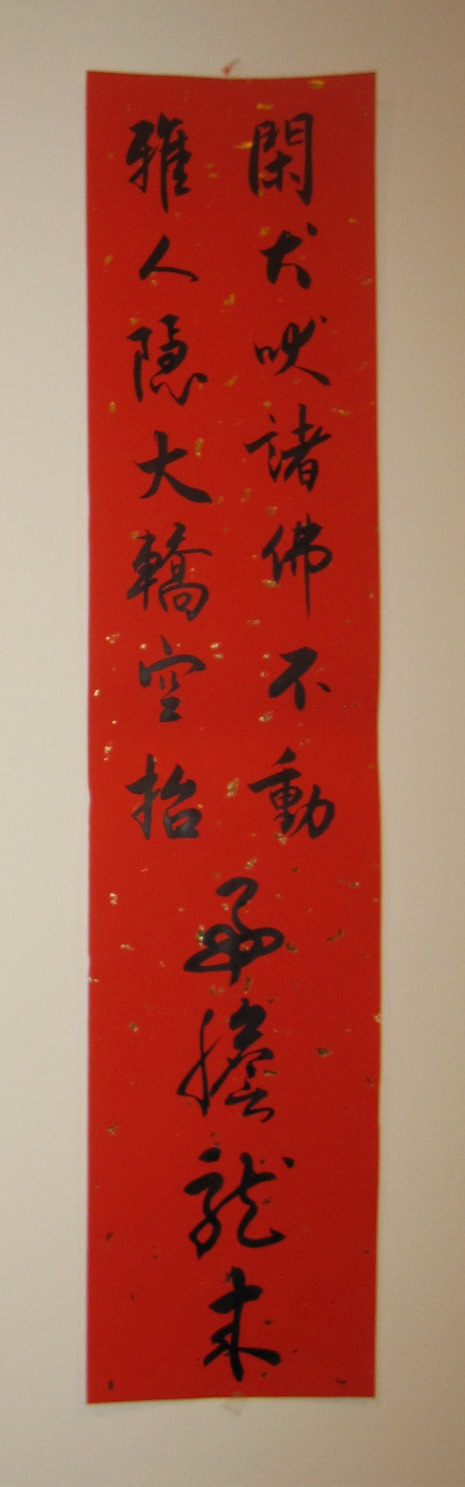 閑犬吠諸佛不動
雅人隱大轎空抬
龍